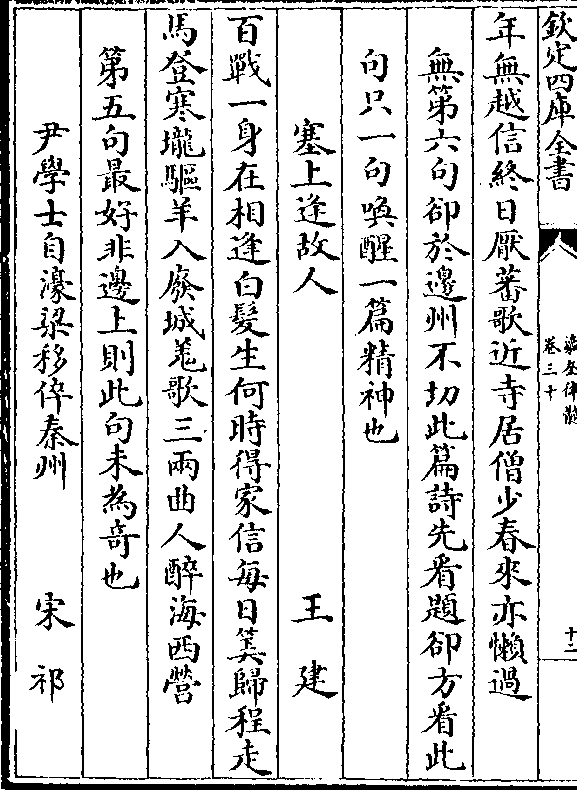 欽定四庫全書
瀛奎律髓
卷三十
十二
年無越信終日厭蕃歌近寺居僧少春來亦懶過
無第六句卻於邊州不切此篇詩先看題卻方看此
句只一句喚醒一篇精神也
塞上逢故人　王建
百戰一身在相逢白髮生何時得家信每日算歸程走
馬登寒壠驅羊入廢城羗歌三兩曲人醉海西營
第五句最好非邊上則此句未為奇也
尹學士自濠梁移倅秦州　宋祁